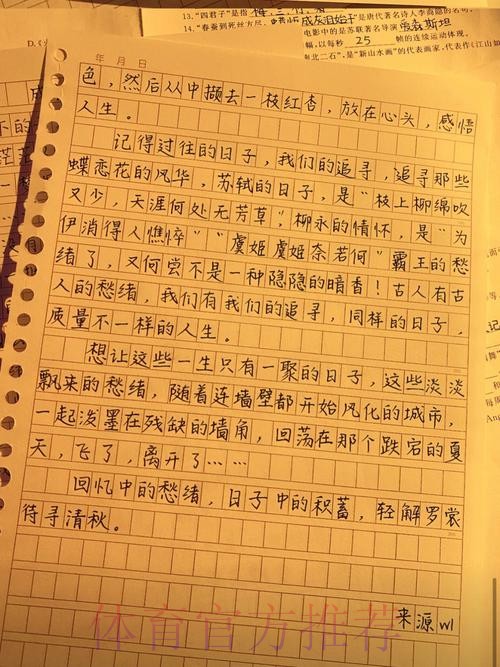 13."四君子"是指 梅.兰.竹.菊
14."春蚕到死丝方尽，成灰泪始干"是唐代著名诗人李商隐的名句
电影中的是苏联著名导演 爱森斯坦
幅,以每秒 25 帧的连续运动体现。
北二石",是"新山水画"的代表画家,代表作《江山如
D.《
年 月 日
色，然后从中撷去一枝红杏，放在心头，感悟
人生。
记得过往的日子，我们的追寻，追寻那些
蝶恋花的风华，苏轼的日子，是"枝上柳绵吹
又少，天涯何处无芳草"；柳永的情怀，是"为
伊消得人憔悴""虞姬虞姬奈若何"霸王的愁
绪了，又何尝不是一种隐隐的暗香！古人有古
人的愁绪，我们有我们的追寻，同样的日子，
质量不一样的人生。
想让这些一生只有一聚的日子，这些淡淡
飘来的愁绪，随着连墙壁都开始风化的城市，
一起泼墨在残缺的墙角，回荡在那个跌宕的夏
天，飞了，离开了……
回忆中的愁绪，日子中的积蓄，轻解罗裳
待寻清秋。
来源wl
体育官方推荐